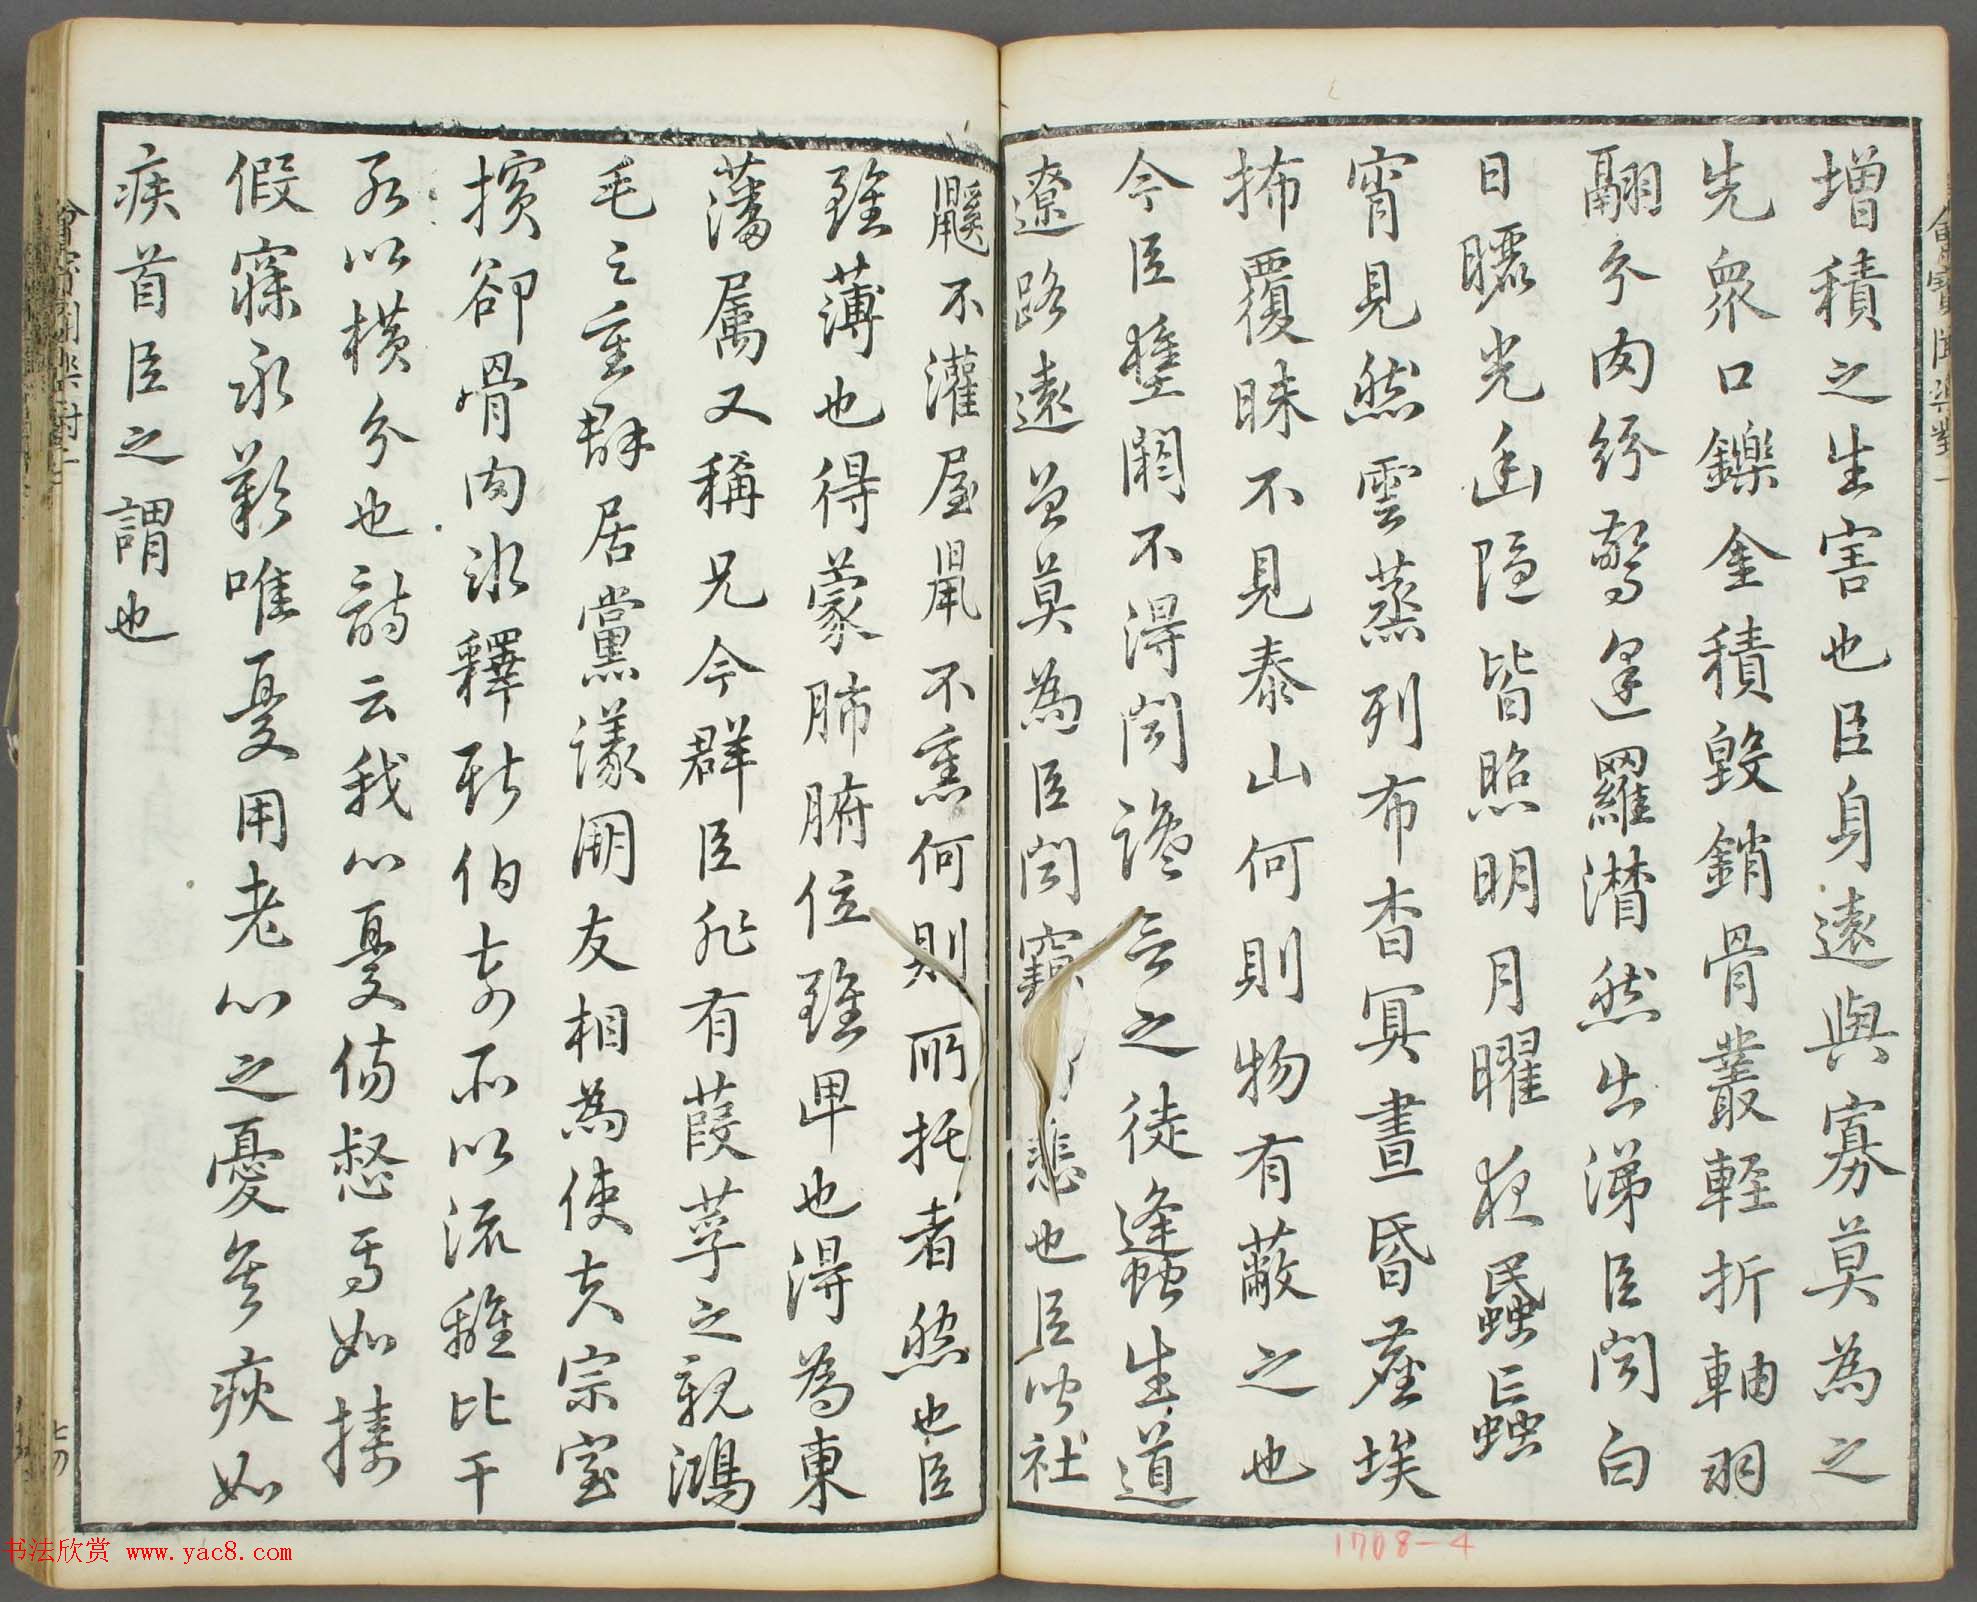 聞樂對
增積之生害也臣身遠與寡莫為之
先衆口鑠金積毀銷骨叢輕折軸羽
翮飛肉紛驚逢羅潸然出涕臣聞白
日曬光幽隱皆照明月曜夜蟁蝱
宵見然雲蒸列布杳冥晝昏塵埃
抪覆昧不見泰山何則物有蔽之也
今臣壅閼不得聞讒言之徒蠭生道
遼路遠曾莫為臣聞竊悲也臣聞社
鼷不灌屋鼠不熏何則所托者然也臣
雖薄也得蒙肺腑位雖卑也得為東
藩屬又稱兄今群臣非有葭莩之親鴻
毛之重群居黨議朋友相為使夫宗室
擯卻骨肉冰釋斯伯奇所以流離比干
所以橫分也詩云我心憂傷惄焉如擣
假寐永歎唯憂用老心之憂矣疢如
疾首臣之謂也
1708-4
书法欣赏 www.yac8.com